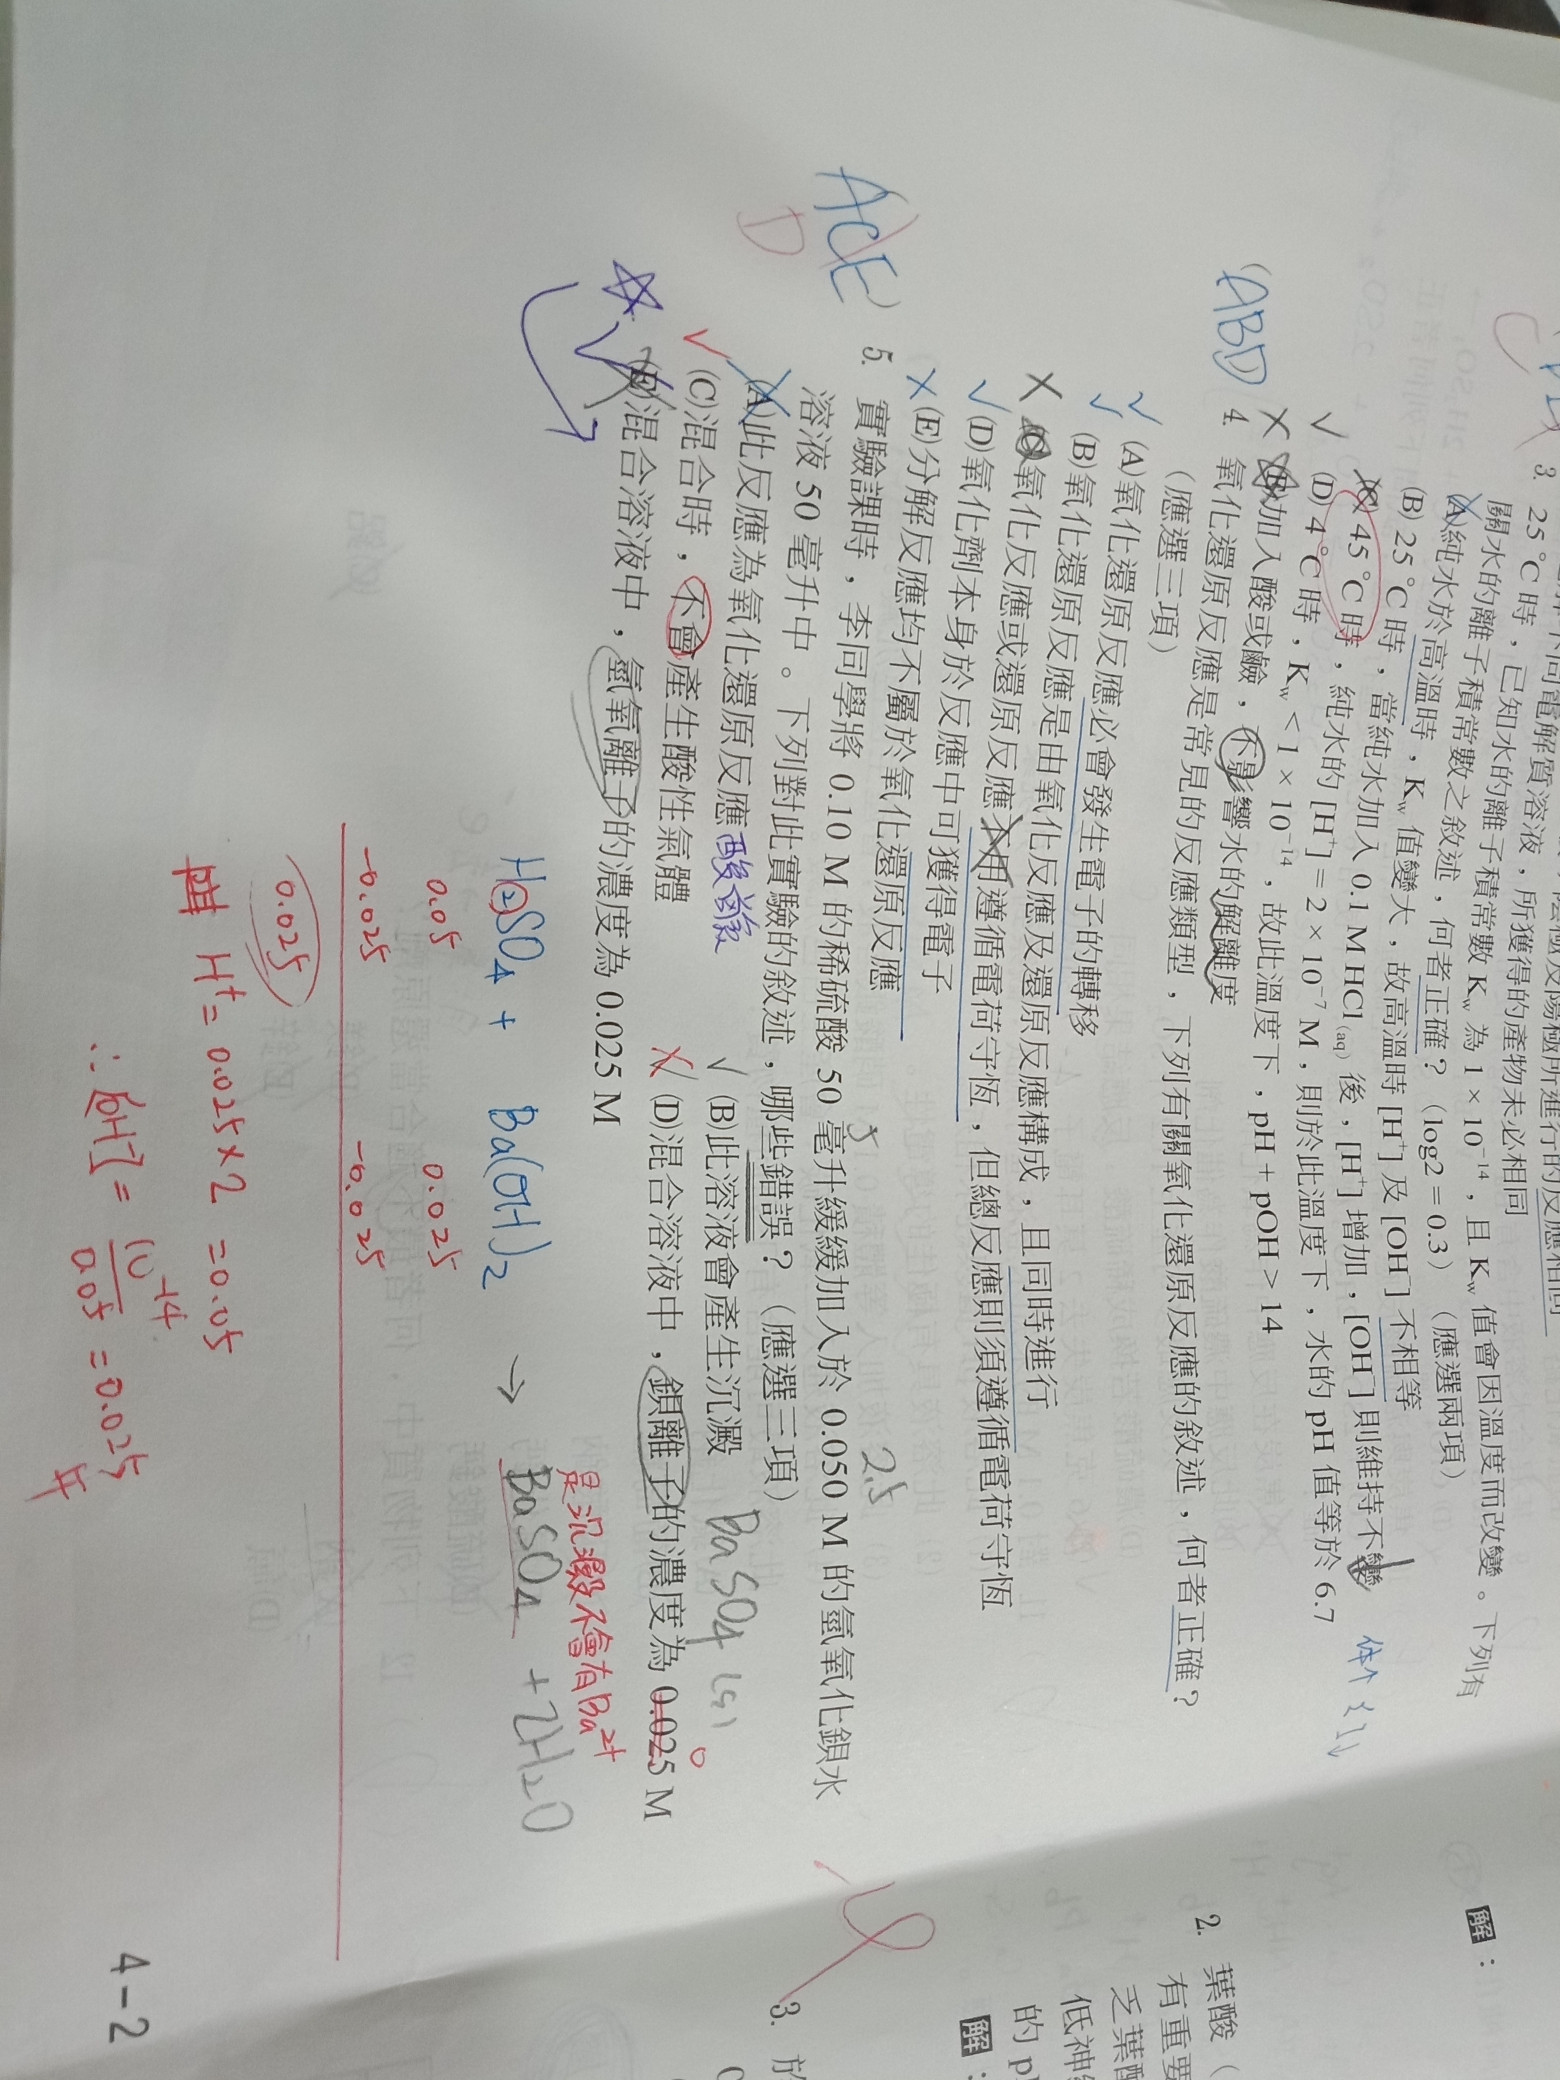 3. 25°C時，已知水的離子積常數 Kw 為 1 × 10⁻¹⁴，且 Kw 值會因溫度而改變。下列有
關水的離子積常數之敘述，何者正確？（log2 = 0.3）（應選兩項）
(A)純水於高溫時，Kw 值變大，故高溫時 [H⁺] 及 [OH⁻] 不相等
(B) 25°C 時，當純水加入 0.1 M HCl(aq) 後，[H⁺] 增加，[OH⁻] 則維持不變
(C) 45°C 時，純水的 [H⁺] = 2 × 10⁻⁷ M，則於此溫度下，水的 pH 值等於 6.7
(D) 4°C 時，Kw < 1 × 10⁻¹⁴，故此溫度下，pH + pOH > 14
(E)加入酸或鹼，不影響水的解離度
(ABD
4. 氧化還原反應是常見的反應類型，下列有關氧化還原反應的敘述，何者正確？
（應選三項）
(A)氧化還原反應必會發生電子的轉移
(B)氧化還原反應是由氧化反應及還原反應構成，且同時進行
(C)氧化反應或還原反應不用遵循電荷守恆，但總反應則須遵循電荷守恆
(D)氧化劑本身於反應中可獲得電子
(E)分解反應均不屬於氧化還原反應
ACE)
D
5. 實驗課時，李同學將 0.10 M 的稀硫酸 50 毫升緩緩加入於 0.050 M 的氫氧化鋇水
溶液 50 毫升中。下列對此實驗的敘述，哪些錯誤？（應選三項）
(A)此反應為氧化還原反應 (B)此溶液會產生沉澱
BaSO4(s)
(C)混合時，不會產生酸性氣體 (D)混合溶液中，鋇離子的濃度為 0.025 M
0
(E)混合溶液中，氫氧離子的濃度為 0.025 M
是沉澱不會有Ba²⁺
H2SO4 + Ba(OH)2 → BaSO4 + 2H2O
0.05 0.025
-0.025 -0.025
0.025
H⁺ = 0.025×2 = 0.05
∴ [OH⁻] = 10⁻¹⁴/0.05 = 0.025
4-2
解：
2. 葉酸（
有重要
乏葉酸
低神經
的 pH
解：
3. 於